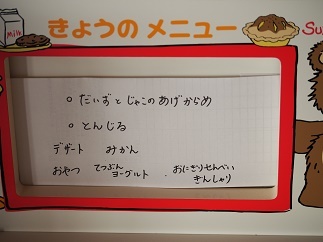 MILK
きょうの メニュー
Su
○ だいずとじゃこのあげからめ
○ とんじる
デザート みかん
おやつ てつぶん ヨーグルト ・おにぎりせんべい きんしゃり